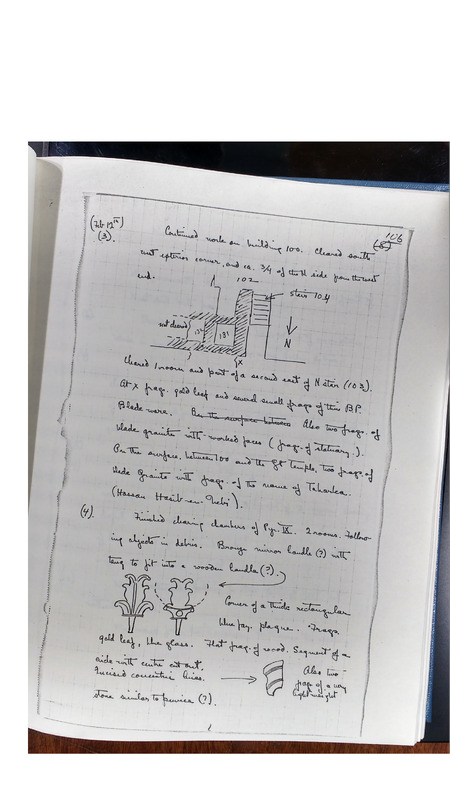 106
(Feb 12th)
(3). Continued work on building 100. Cleared south
west exterior corner, and ca. 3/4 of the N side from the west
end.
102
stair 104
not cleared
131
N
x
Cleared 1 room and part of a second east of N stair (103).
At x frag. gold leaf and several small frags of thin BP.
Blade ware. On the surface between Also two frags. of
blade granite with worked faces (frag. of statuary.).
On the surface, between 100 and the Gt Temple, two frags. of
blade Granite with frags. of the name of Taharka.
(Hassan Hasib-en-Nebi).
(4). Finished clearing chambers of Pyr. IX. 2 rooms. Follow-
ing objects in debris. Bronze mirror handle (?) with
tang to fit into a wooden handle (?).
Corner of a thick rectangular
blue fay. plaque. Frags
gold leaf, blue glass. Flat frag. of wood. Segment of a
side with centre cut out.
Incised concentric lines.
Also two
frags of a very
light weight
stone similar to pumice (?).